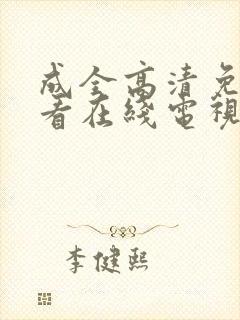 成全高清免
看在綫電視
李健熙